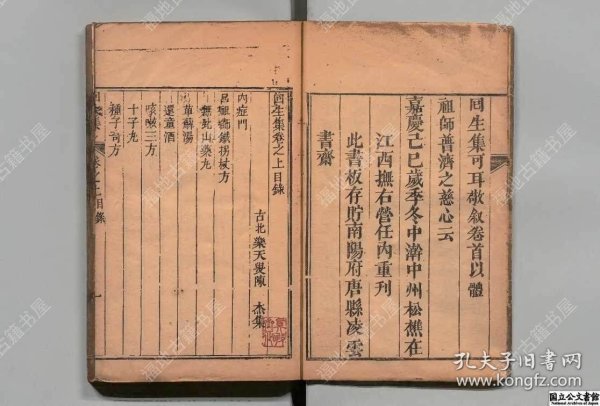 回生集可耳敬叙卷首以體
祖師普濟之慈心云
嘉慶己巳歲季冬中澣中州松樵在
江西撫右營任內重刊
此書板存貯南陽府唐縣凌雲
書齋
回生集卷之上目錄
古北 樂天叟陳 杰集
內症門
呂祖師鐵拐杖方
無比山藥丸
萆薢湯
還童酒
咳嗽三方
十子丸
種子奇方
福地古籍书屋
孔夫子旧书网
www.kongfz.com
国立公文書館
National Archives of Japan